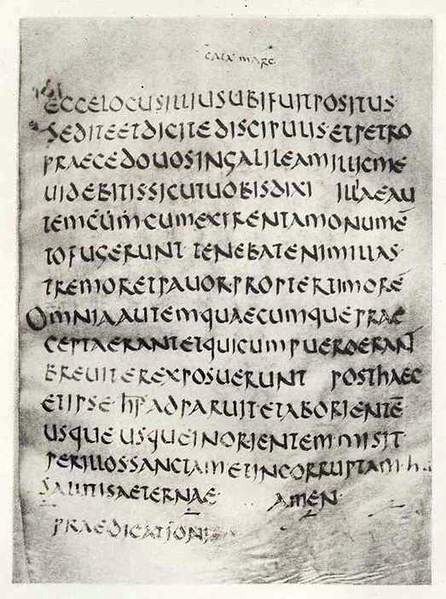 CATA MARC
ECCELOCUSILLIUSUBIFUITPOSITUS
SEDITEETDICITEDISCIPULISETPETRO
PRAECEDOUOSINGALILEAMILLICME
UIDEBITISSICUTUOBISDIXI ILLAEAU
TEMCUMCUMEXIRENTAMONUMĒ
TOFUGERUNT TENEBATENIMILLAS
TREMORETPAUORPROPTERTIMORĒ
OMNIAAUTEMQUAECUMQUEPRAE
CEPTAERANTETQUICUMPUEROERANT
BREUITEREXPOSUERUNT POSTHAEC
ETIPSE ADPARUITETABORIENTĒ
USQUEUSQUEINORIENTEMMISIT
PERILLOSSANCTAMETINCORRUPTAM·H·
SALUTISAETERNAE AMEN
PRAEDICATIONIS